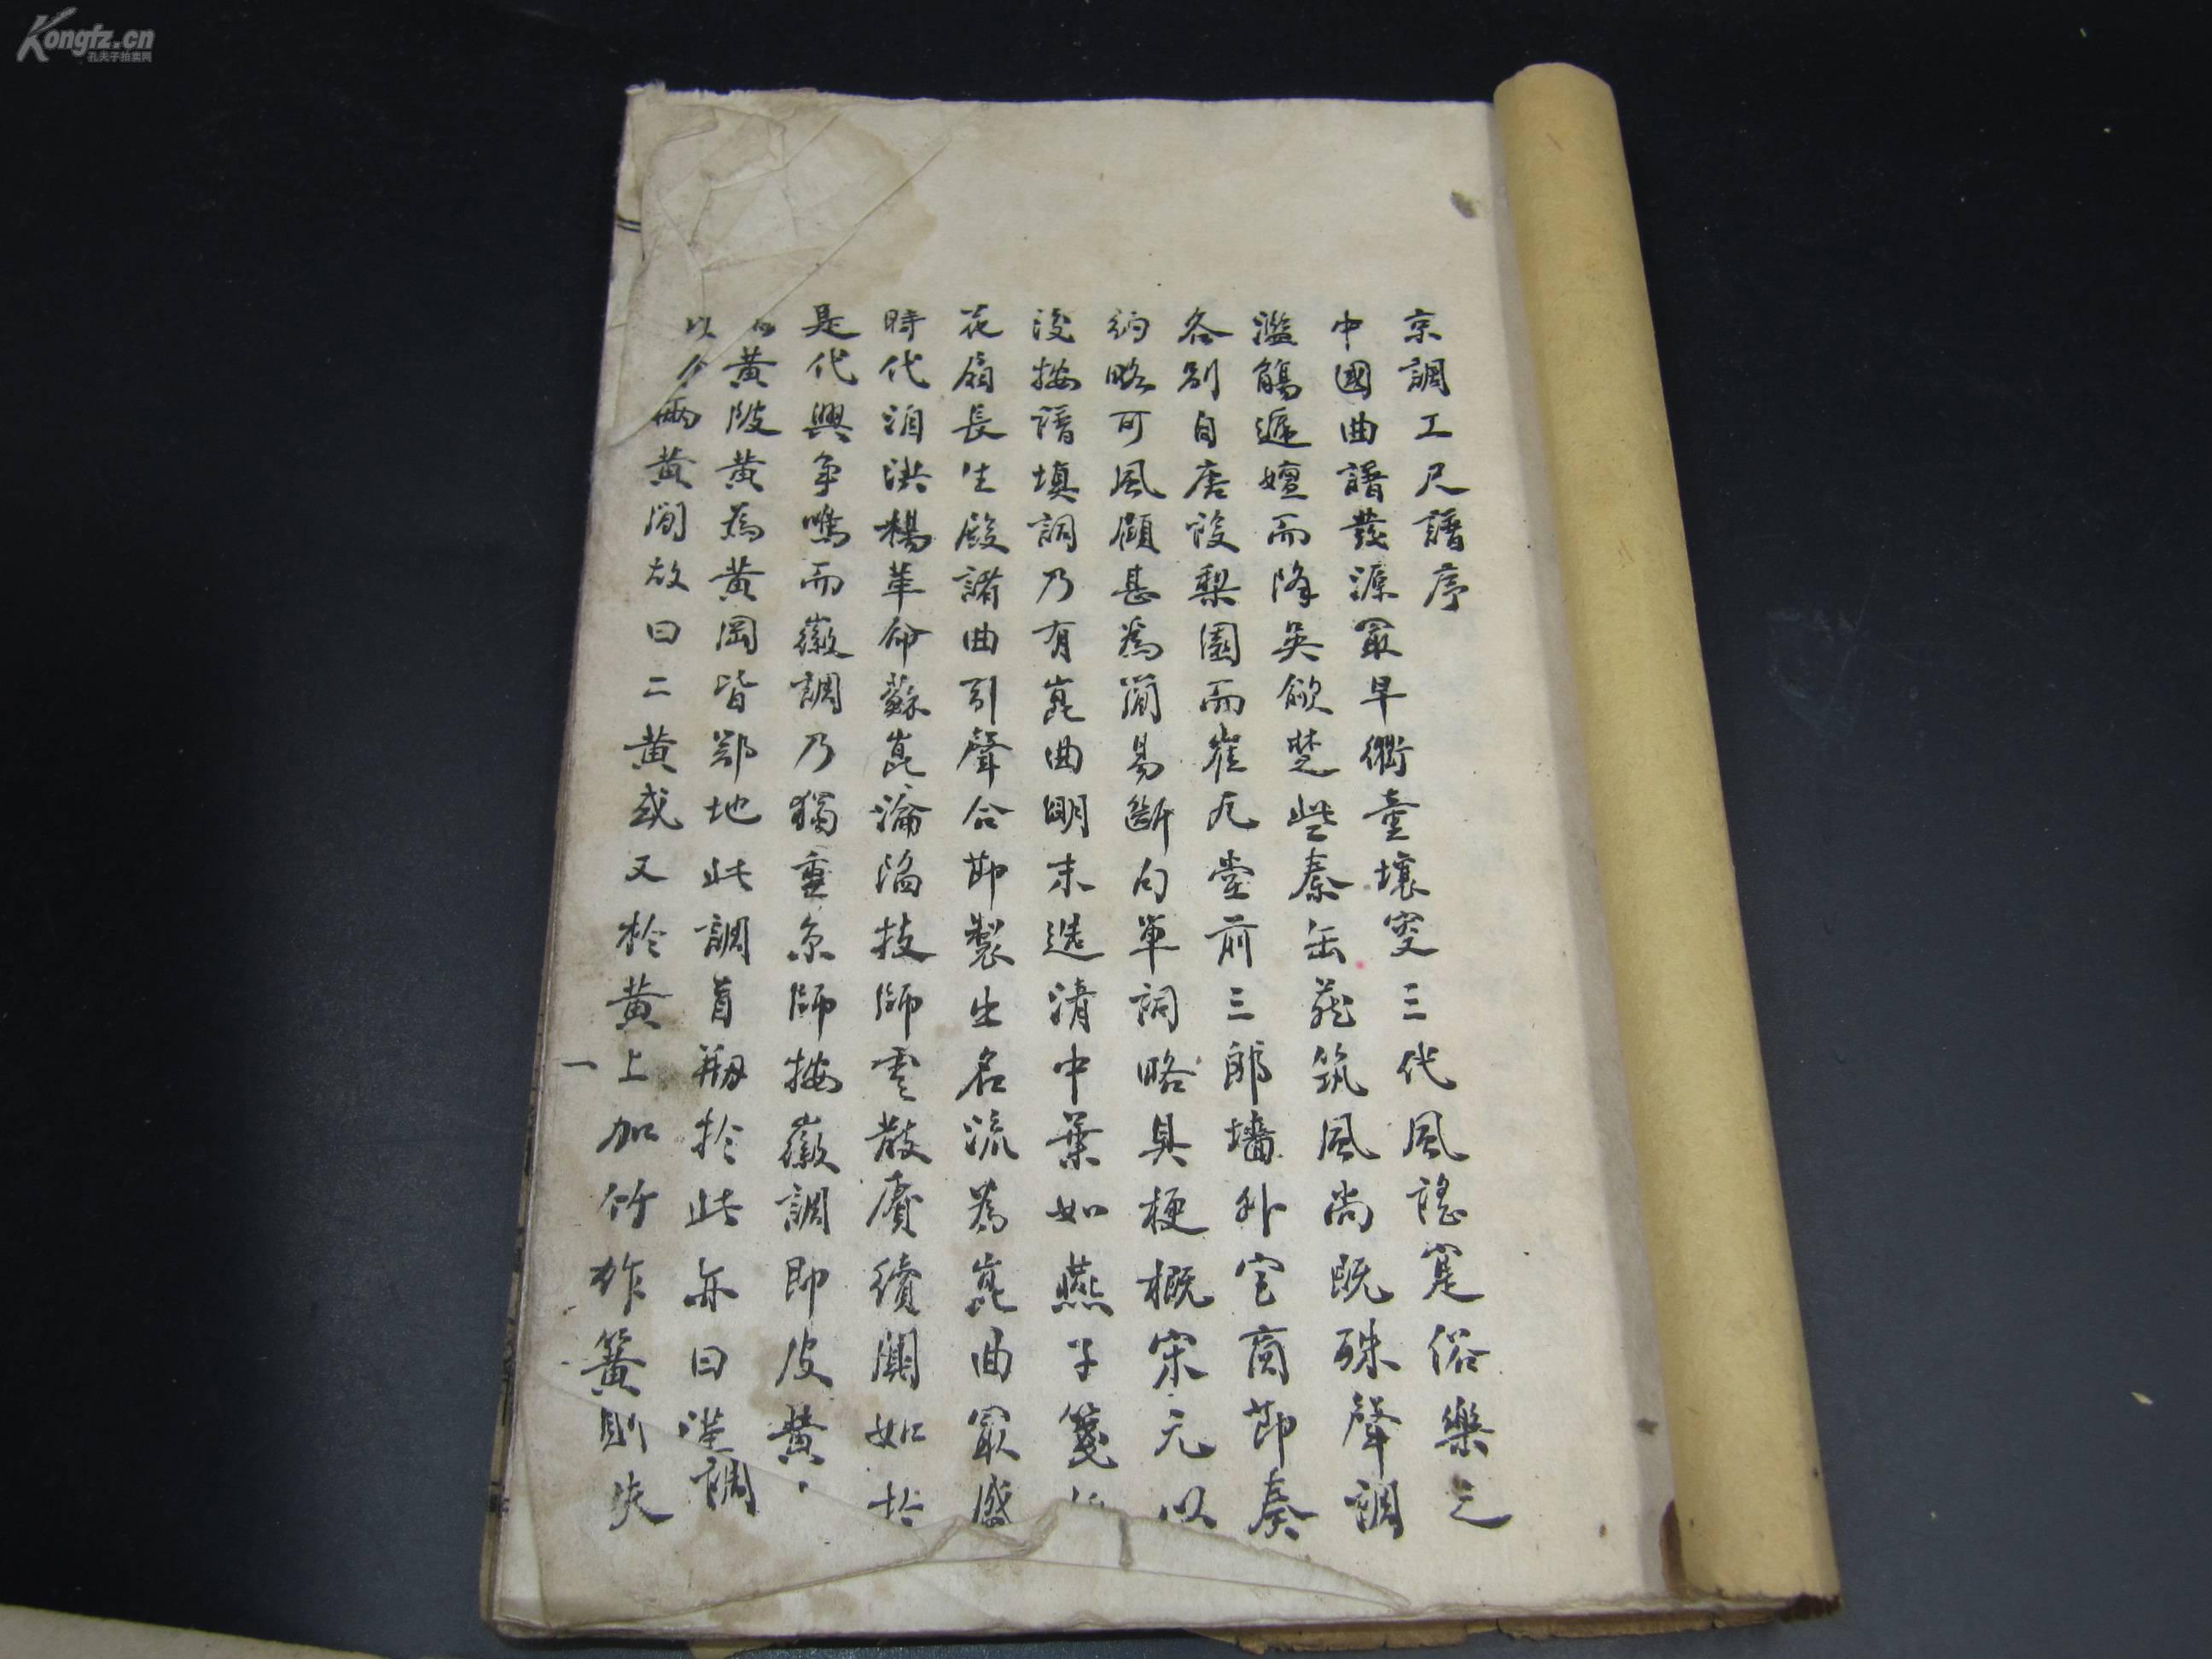 Kongfz.cn
孔夫子拍卖网
京調工尺譜序
中國曲譜發源最早衢童壤叟三代風謠寔俗樂之
濫觴遞嬗而降吳歈楚些秦缶燕筑風尚既殊聲調
各別自唐設梨園而崔九堂前三郎墻外宮商節奏
約略可風顧甚為簡易斷句單詞略具梗概宋元以
後按譜填詞乃有崑曲明末迄清中葉如燕子箋
花扇長生殿諸曲引聲合節製出名流為崑曲最盛
時代洎洪楊革命蘇崑淪陷技師雲散賡續闃如於
是代興爭鳴而徽調乃獨重京師按徽調即皮黃
黃陂黃為黃岡皆鄂地此調首剏於此亦曰漢調
以介兩黃間故曰二黃或又於黃上加竹作簧則失
一